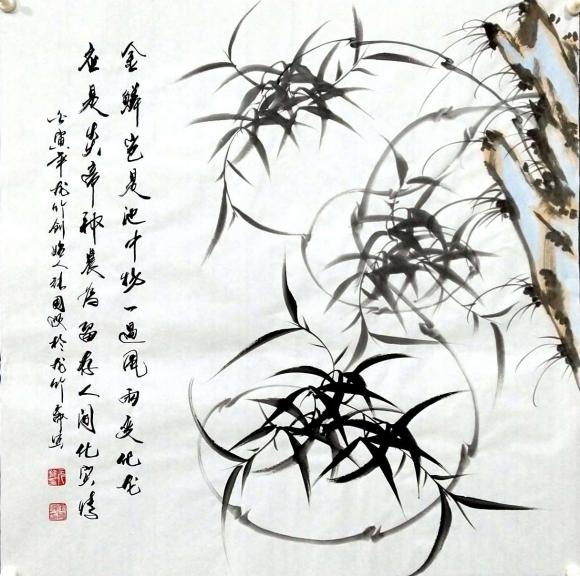 金鳞岂是池中物一遇风雨变化龙
应是炎帝神农为留存人间化实情
壬寅年龙竹创始人林国 于龙竹 写